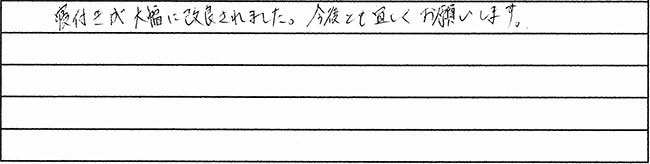 寝付きが大幅に改良されました。今後とも宜しくお願いします。